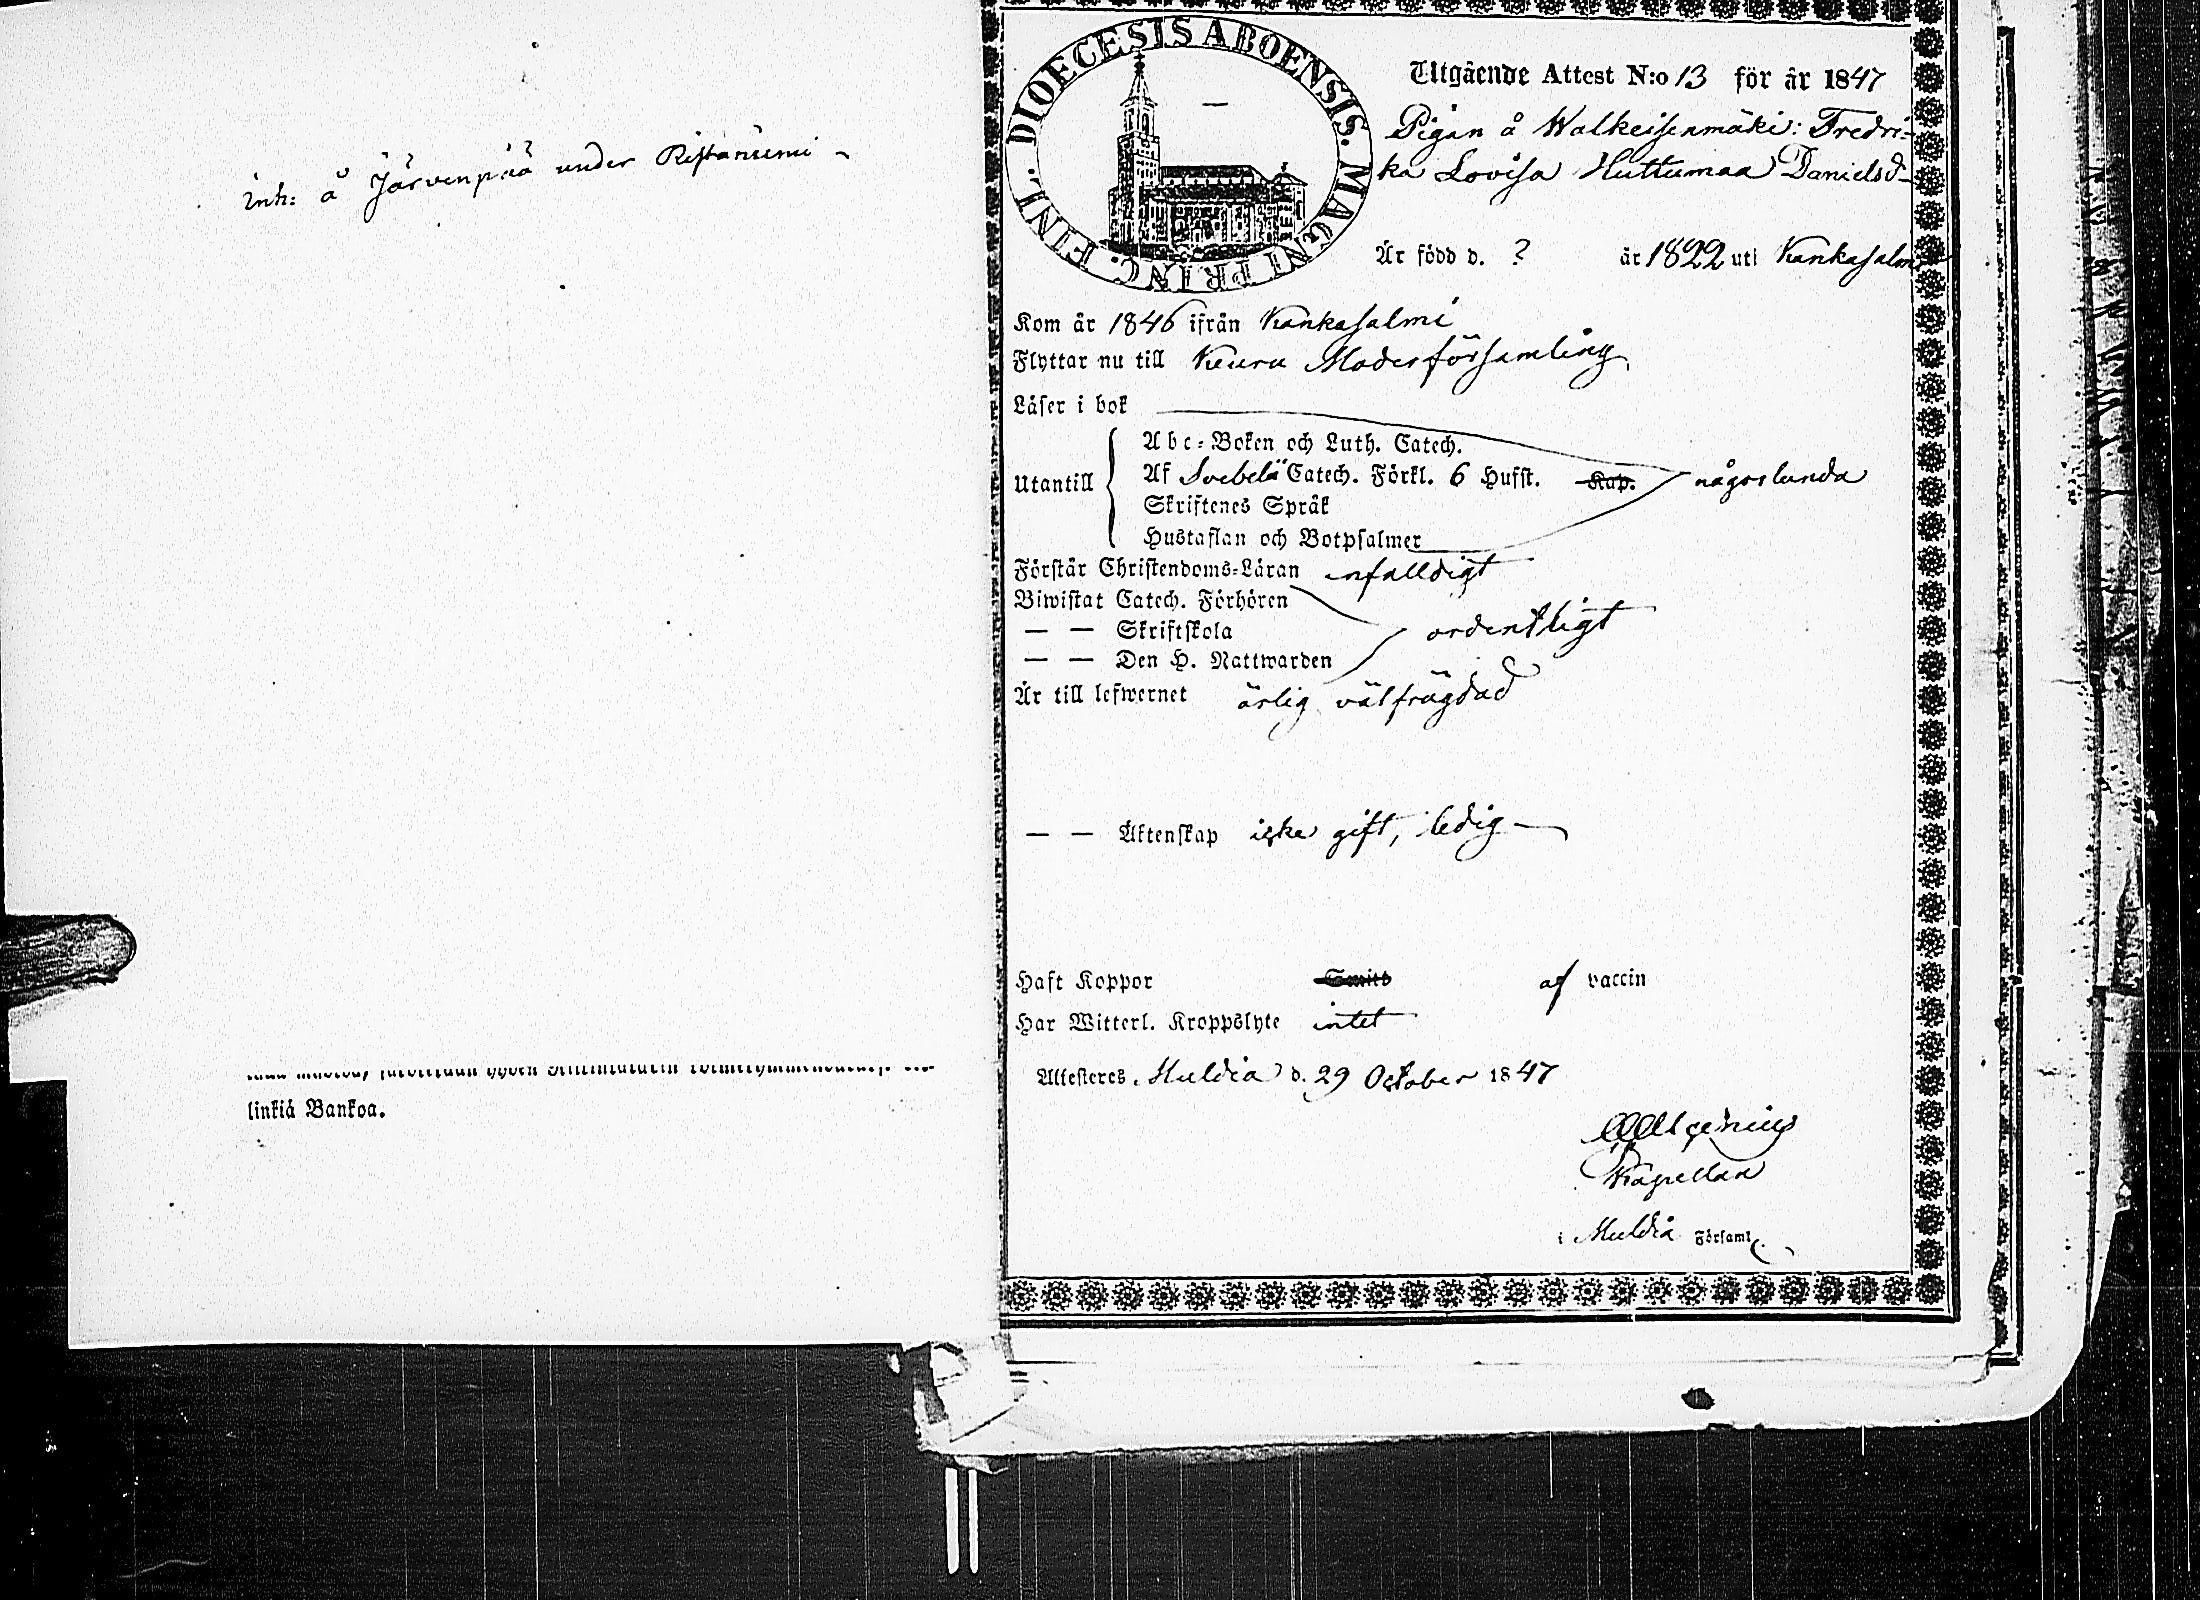 inh: å Järvenpää under Ristaniemi
linkiä Bankoa.
DIOECESIS ABOENSIS. MAGNI PRINC. FINL.
Utgående Attest N:o 13 för år 1847
Pigan å Walkeisenmäki: Fredri-
ka Lovisa Huttumaa Danielsd
Är född d. ? år 1822 uti Kankasalmi
Kom år 1846 ifrån Kankasalmi
Flyttar nu till Keuru Moderförsamling
Läser i bok
Abc-Boken och Luth. Catech.
Utantill Af Svebelii Catech. Förkl. 6 Hufst. Kap. någorlunda
Skriftenes Språk
Hustaflan och Botpsalmer
Förstår Christendoms-Läran enfalldigt
Biwistat Catech. Förhören
— — Skriftskola ordentligt
— — Den H. Nattwarden
Är till lefwernet ärlig välfrägdad
— — Äktenskap icke gift, ledig
Haft Koppor af vaccin
Har Witterl. Kroppslyte intet
Attesteres. Muldia d. 29 October 1847
Kapellan
i Muldia Församl.